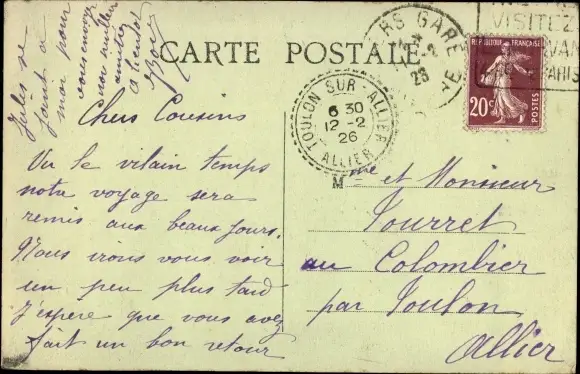 CARTE POSTALE
Jules se
joint à
moi pour
vous envoyer
nos meilleures
amitiés
à bientôt
Chers Cousins
Vu le vilain temps
notre voyage sera
remis aux beaux jours.
Nous irons vous voir
un peu plus tard
J'espère que vous avez
fait un bon retour
RS GARE
26
VISITEZ
PARIS
REPUBLIQUE FRANÇAISE
20c
POSTES
TOULON-SUR-ALLIER
6 30
12-2
26
ALLIER
Mme et Monsieur
Tourret
au Colombier
par Toulon
Allier